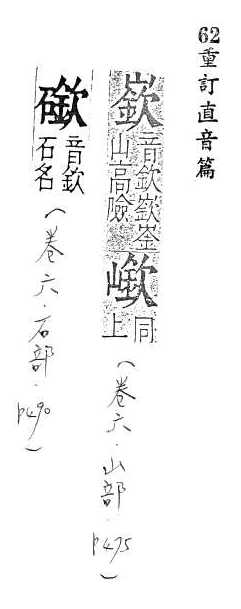 62重訂直音篇
嶔
音欽嶔崟
山高險
同
上
(卷六.山部.p475)
音欽
石名
(卷六.石部.p490)